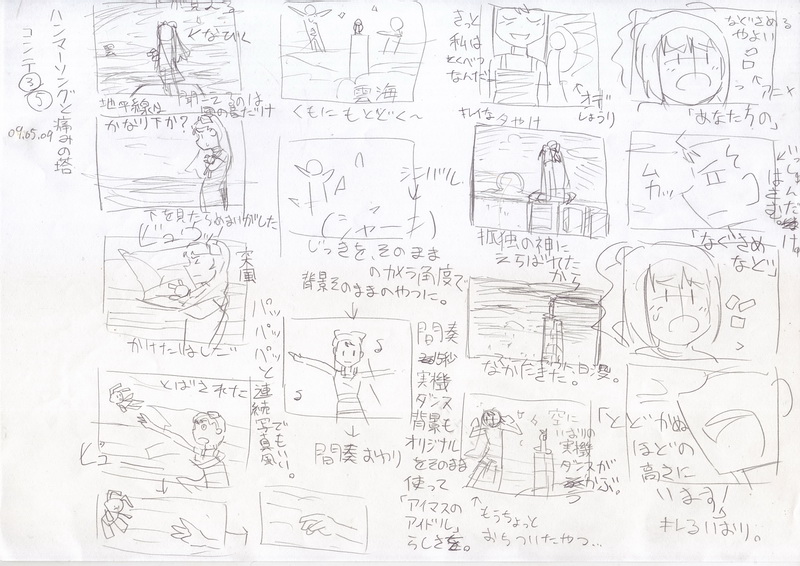 ハンマーソングと痛みの塔
コンテ③
⑤
09.05.09
くなびく
地平線は
かなり下か?
下を見たらめまいがした
ビュウッ
突風
かけたはしご
パッパッパッと
連続写真風
でもいい。
とばされた
雲海
くもにもとどく〜
シンバル
(シャーン)
じっきを、そのまま
のカメラ角度で
背景そのままのやつに。
間奏
実機
ダンス
背景も
オリジナル
をそのまま
使って
「アイマスの
アイドル」
らしさを。
間奏おわり
きっと
私は
とくべつ
なんだ
オデ
しょうり
キレイな
夕やけ
孤独の神に
えらばれた
から
ながだきた。
空に
いおりの
実機
ダンスが
うかぶ。
もうちょっと
おちついたやつ…
なぐさめる
やよい
アニメ
「あなたちの」
ムカッ
いっしゅんだけ
はさむ。
「なぐさめ
など」
「とどかぬ
ほどの
高さに
います!
キレるいおり。